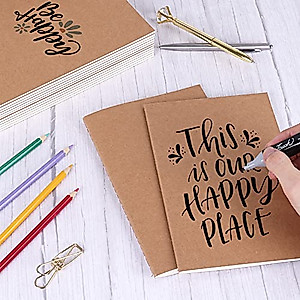 Be
Happy
This
is our
HAPPY
PLACE